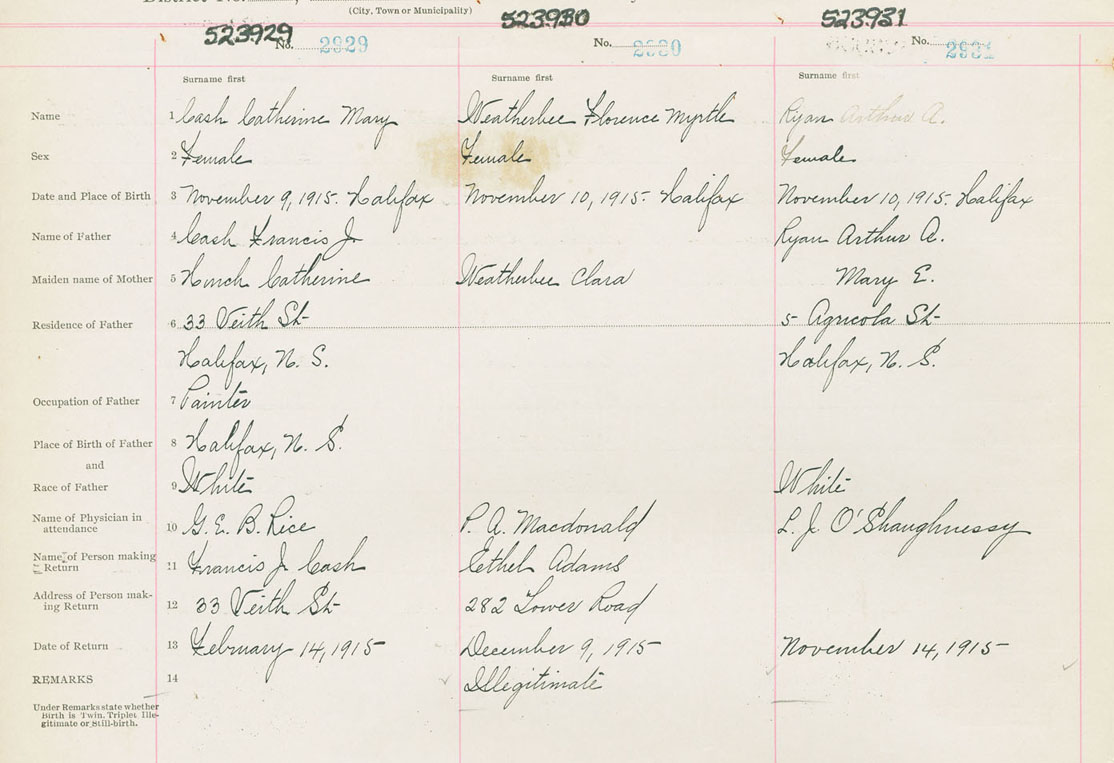 District No.
(City, Town or Municipality)
523929 523930 523931
No. 2929 No. 2930 No. 2931
Surname first Surname first Surname first
Name 1 Cash Catherine Mary Weatherbee Florence Myrtle Ryan Arthur A.
Sex 2 Female Female Female
Date and Place of Birth 3 November 9, 1915. Halifax November 10, 1915. Halifax November 10, 1915. Halifax
Name of Father 4 Cash Francis J. Ryan Arthur A.
Maiden name of Mother 5 Hinch Catherine Weatherbee Clara Mary E.
Residence of Father 6 33 Veith St. 5 Agricola St.
Halifax, N. S. Halifax, N. S.
Occupation of Father 7 Painter
Place of Birth of Father 8 Halifax, N. S.
and
Race of Father 9 White White
Name of Physician in attendance 10 G. E. B. Rice P. A. Macdonald L. J. O'Shaughnessy
Name of Person making Return 11 Francis J. Cash Ethel Adams
Address of Person making Return 12 33 Veith St. 282 Lower Road
Date of Return 13 February 14, 1915 December 9, 1915 November 14, 1915
REMARKS 14 Illegitimate
Under Remarks state whether
Birth is Twin, Triplet, Ille-
gitimate or Still-birth.